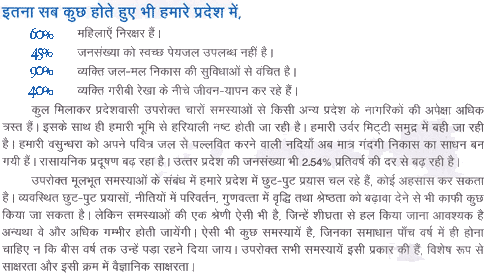 इतना सब कुछ होते हुए भी हमारे प्रदेश में,
60% महिलाऐं निरक्षर हैं।
45% जनसंख्या को स्वच्छ पेयजल उपलब्ध नहीं है।
90% व्यक्ति जल-मल निकास की सुविधाओं से वंचित है।
40% व्यक्ति गरीबी रेखा के नीचे जीवन-यापन कर रहे हैं।
कुल मिलाकर प्रदेशवासी उपरोक्त चारों समस्याओं से किसी अन्य प्रदेश के नागरिकों की अपेक्षा अधिक
त्रस्त हैं। इसके साथ ही हमारी भूमि से हरियाली नष्ट होती जा रही है। हमारी उर्वर मिट्टी समुद्र में बही जा रही
है। हमारी वसुन्धरा को अपने पवित्र जल से पल्लवित करने वाली नदियाँ अब मात्र गंदगी निकास का साधन बन
गयी हैं। रासायनिक प्रदूषण बढ़ रहा है। उत्तर प्रदेश की जनसंख्या भी 2.54% प्रतिवर्ष की दर से बढ़ रही है।
उपरोक्त मूलभूत समस्याओं के संबंध में हमारे प्रदेश में छुट-पुट प्रयास चल रहे हैं, कोई अहसास कर सकता
है। व्यवस्थित छुट-पुट प्रयासों, नीतियों में परिवर्तन, गुणवत्ता में वृद्धि तथा श्रेष्ठता को बढ़ावा देने से भी काफी कुछ
किया जा सकता है। लेकिन समस्याओं की एक श्रेणी ऐसी भी है, जिन्हें शीघ्रता से हल किया जाना आवश्यक है
अन्यथा वे और अधिक गम्भीर होती जायेंगी। ऐसी भी कुछ समस्यायें है, जिनका समाधान पाँच वर्ष में ही होना
चाहिए न कि बीस वर्ष तक उन्हें पड़ा रहने दिया जाय। उपरोक्त सभी समस्यायें इसी प्रकार की हैं, विशेष रूप से
साक्षरता और इसी क्रम में वैज्ञानिक साक्षरता।